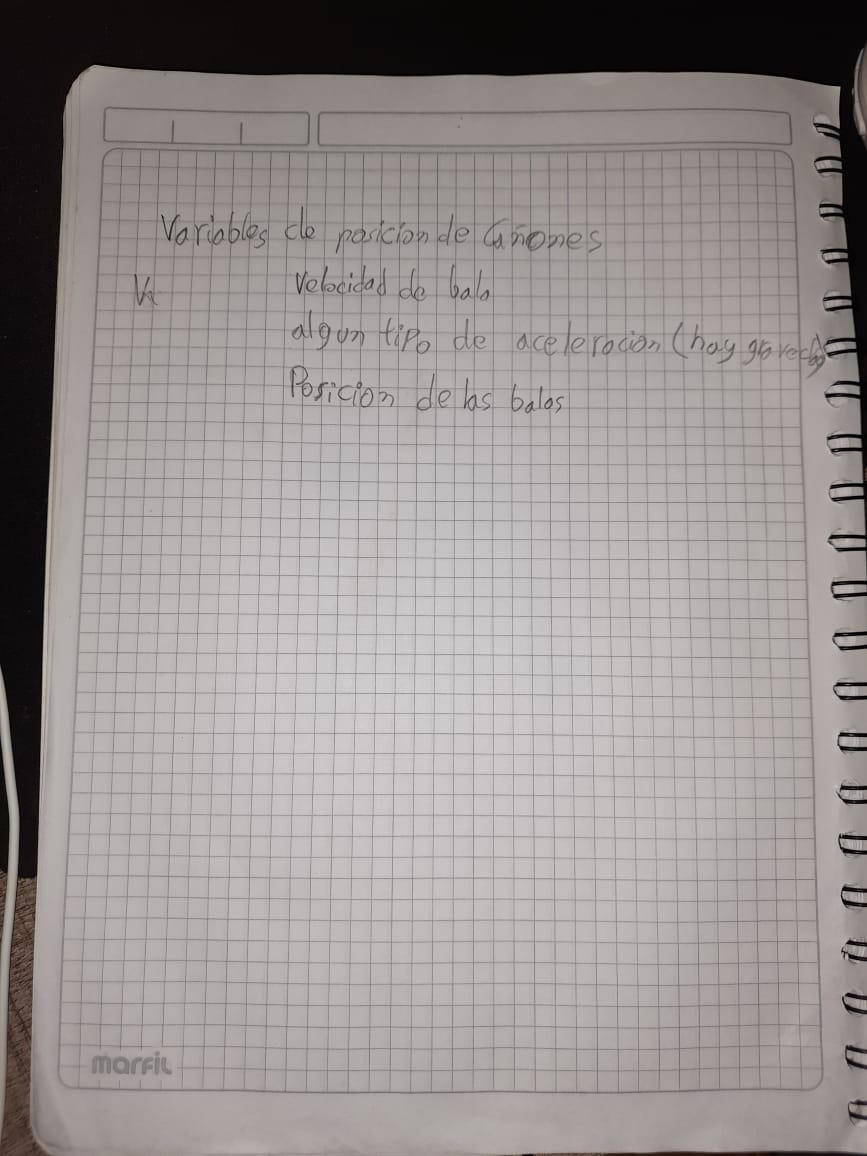 Variables de posicion de Cañones
V
velocidad de bala
algun tipo de aceleracion (hay gravedad)
Posicion de las balas
marfil